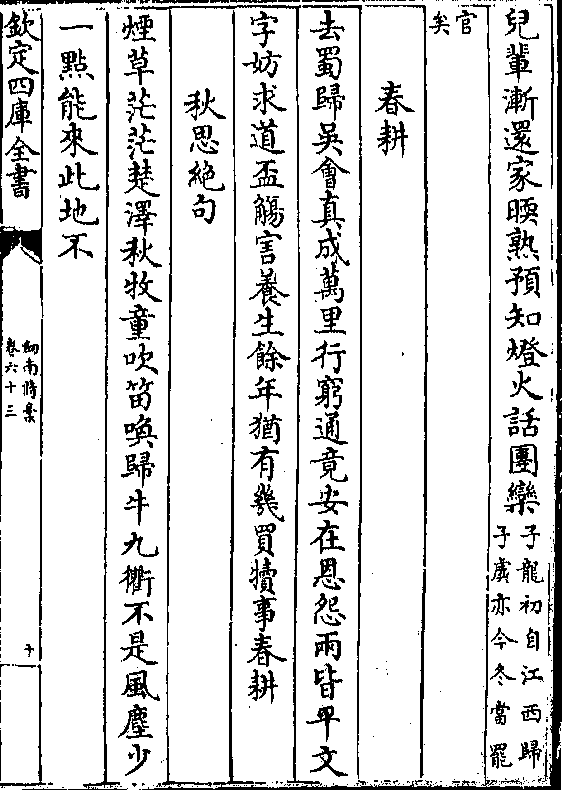 兒輩漸還家暖熟預知燈火話團欒子龍初自江西歸
子虡亦今冬當罷
官
矣
春耕
去蜀歸吳會真成萬里行窮通竟安在恩怨兩皆平文
字妨求道盃觴害養生餘年猶有幾買犢事春耕
秋思絶句
煙草茫茫楚澤秋牧童吹笛喚歸牛九衢不是風塵少
一點能來此地不
欽定四庫全書
劔南詩藁
卷六十三